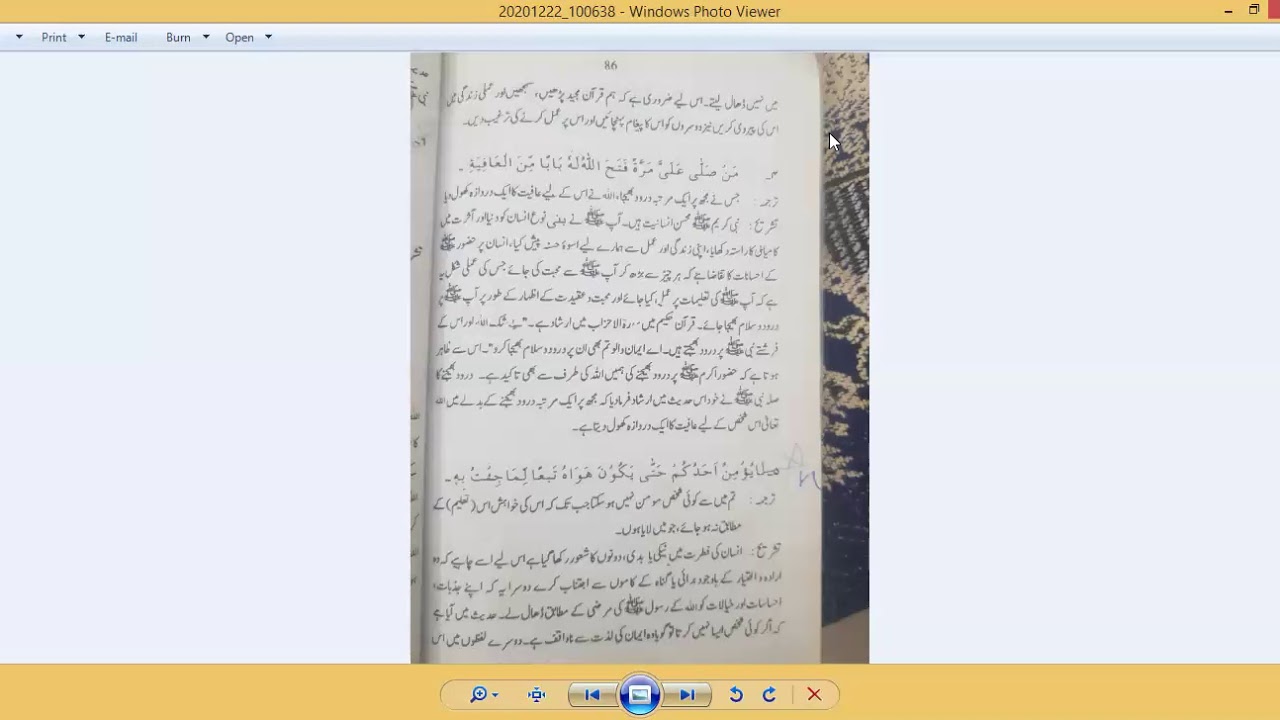 20201222_100638 - Windows Photo Viewer
Print E-mail Burn Open
86
میں نہیں ڈھال لیتے۔ اس لیے ضروری ہے کہ ہم قرآن مجید پڑھیں، سمجھیں اور عملی زندگی میں
اس کی پیروی کریں نیز دوسروں کو اس کا پیغام پہنچائیں اور اس پر عمل کرنے کی ترغیب دیں۔
مَنْ صَلّٰى عَلَىَّ مَرَّةً فَتَحَ اللّٰهُ لَهٗ بَابًا مِّنَ الْعَافِيَةِ ۔
ترجمہ : جس نے مجھ پر ایک مرتبہ درود بھیجا، اللہ نے اس کے لیے عافیت کا ایک دروازہ کھول دیا
تشریح : نبی کریم ﷺ محسن انسانیت ہیں۔ آپ ﷺ نے بنی نوع انسان کو دنیا اور آخرت میں
کامیابی کا راستہ دکھایا، اپنی زندگی اور عمل سے ہمارے لیے اسوۂ حسنہ پیش کیا، انسان پر حضور ﷺ
کے احسانات کا تقاضا ہے کہ ہر چیز سے بڑھ کر آپ ﷺ سے محبت کی جائے جس کی عملی شکل یہ
ہے کہ آپ ﷺ کی تعلیمات پر عمل کیا جائے اور محبت و عقیدت کے اظہار کے طور پر آپ ﷺ پر
درود و سلام بھیجا جائے۔ قرآن حکیم میں سورۃ الاحزاب میں ارشاد ہے۔ "بے شک اللہ اور اس کے
فرشتے نبی ﷺ پر درود بھیجتے ہیں۔ اے ایمان والو تم بھی ان پر درود و سلام بھیجا کرو"۔ اس سے ظاہر
ہوتا ہے کہ حضور اکرم ﷺ پر درود بھیجنے کی ہمیں اللہ کی طرف سے بھی تاکید ہے۔ درود بھیجنے کا
صلہ نبی ﷺ نے خود اس حدیث میں ارشاد فرما دیا کہ مجھ پر ایک مرتبہ درود بھیجنے کے بدلے میں اللہ
تعالیٰ اس شخص کے لیے عافیت کا ایک دروازہ کھول دیتا ہے۔
لَا يُؤْمِنُ اَحَدُكُمْ حَتّٰى يَكُوْنَ هَوَاهُ تَبَعًا لِّمَا جِئْتُ بِهٖ ۔
ترجمہ : تم میں سے کوئی شخص مومن نہیں ہو سکتا جب تک کہ اس کی خواہش اس (تعلیم) کے
مطابق نہ ہو جائے، جو میں لایا ہوں۔
تشریح : انسان کی فطرت میں نیکی یا بدی، دونوں کا شعور رکھا گیا ہے اس لیے اسے چاہیے کہ وہ
ارادہ و اختیار کے باوجود برائی یا گناہ کے کاموں سے اجتناب کرے دوسرا یہ کہ اپنے جذبات،
احساسات اور خیالات کو اللہ کے رسول ﷺ کی مرضی کے مطابق ڈھال لے۔ حدیث میں آیا ہے
کہ اگر کوئی شخص ایسا نہیں کرتا تو گویا وہ ایمان کی لذت سے ناواقف ہے۔ دوسرے لفظوں میں اس